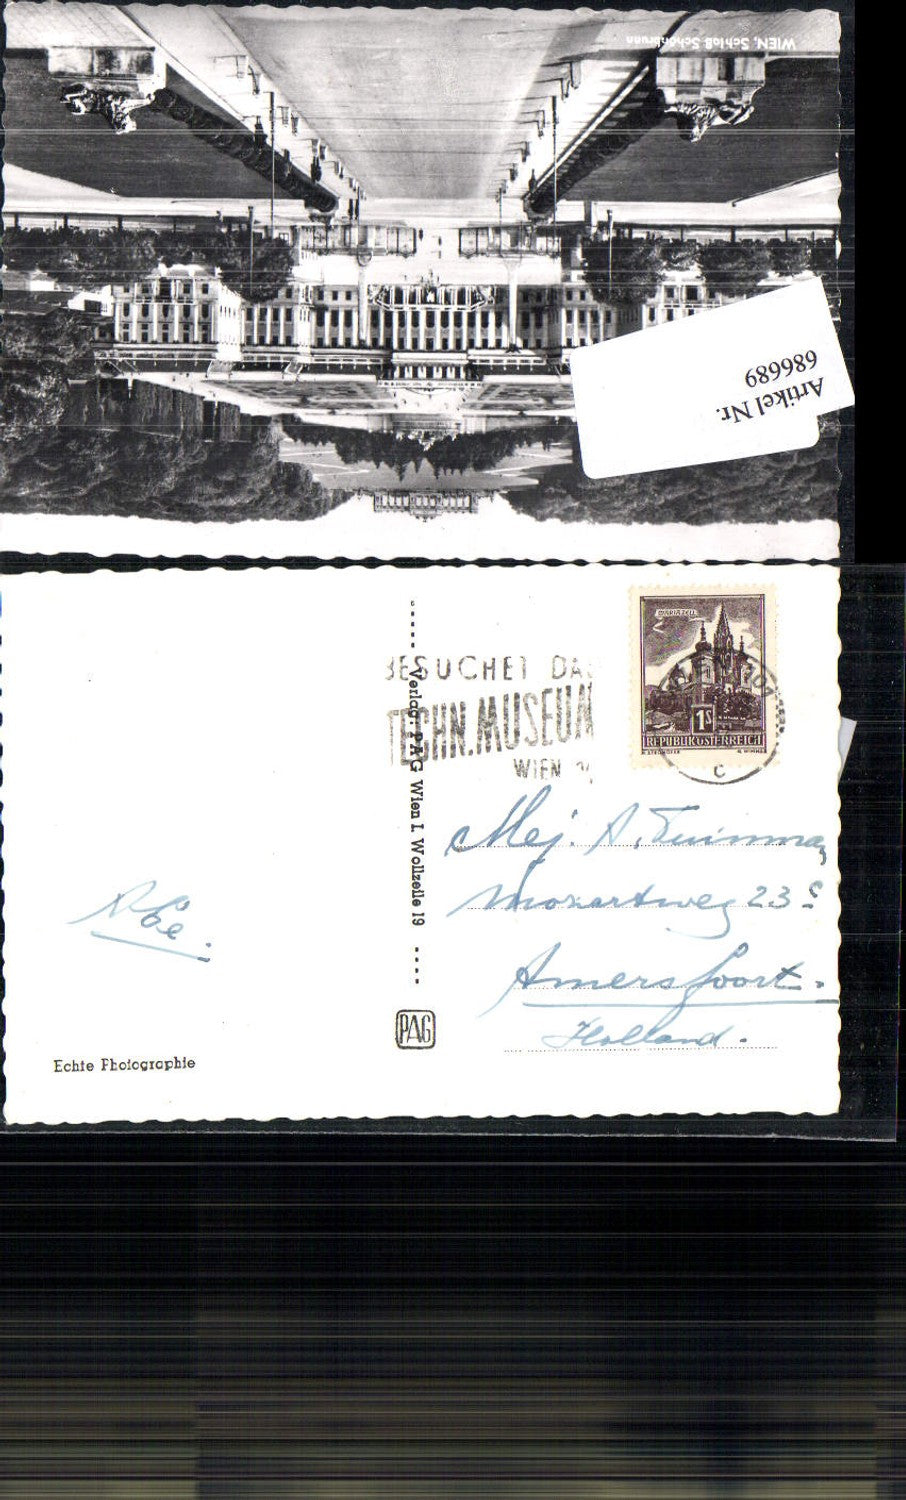 WIEN, Schloß Schönbrunn
Artikel Nr.
686689
BESUCHET DAS
TECHN. MUSEUM
WIEN
MARIAZELL
1S
REPUBLIK ÖSTERREICH
Verlag: PAG Wien I. Wollzeile 19
Mej. A. Tuinman
Mozartweg 23
Amersfoort.
Holland.
PAG
Echte Photographie